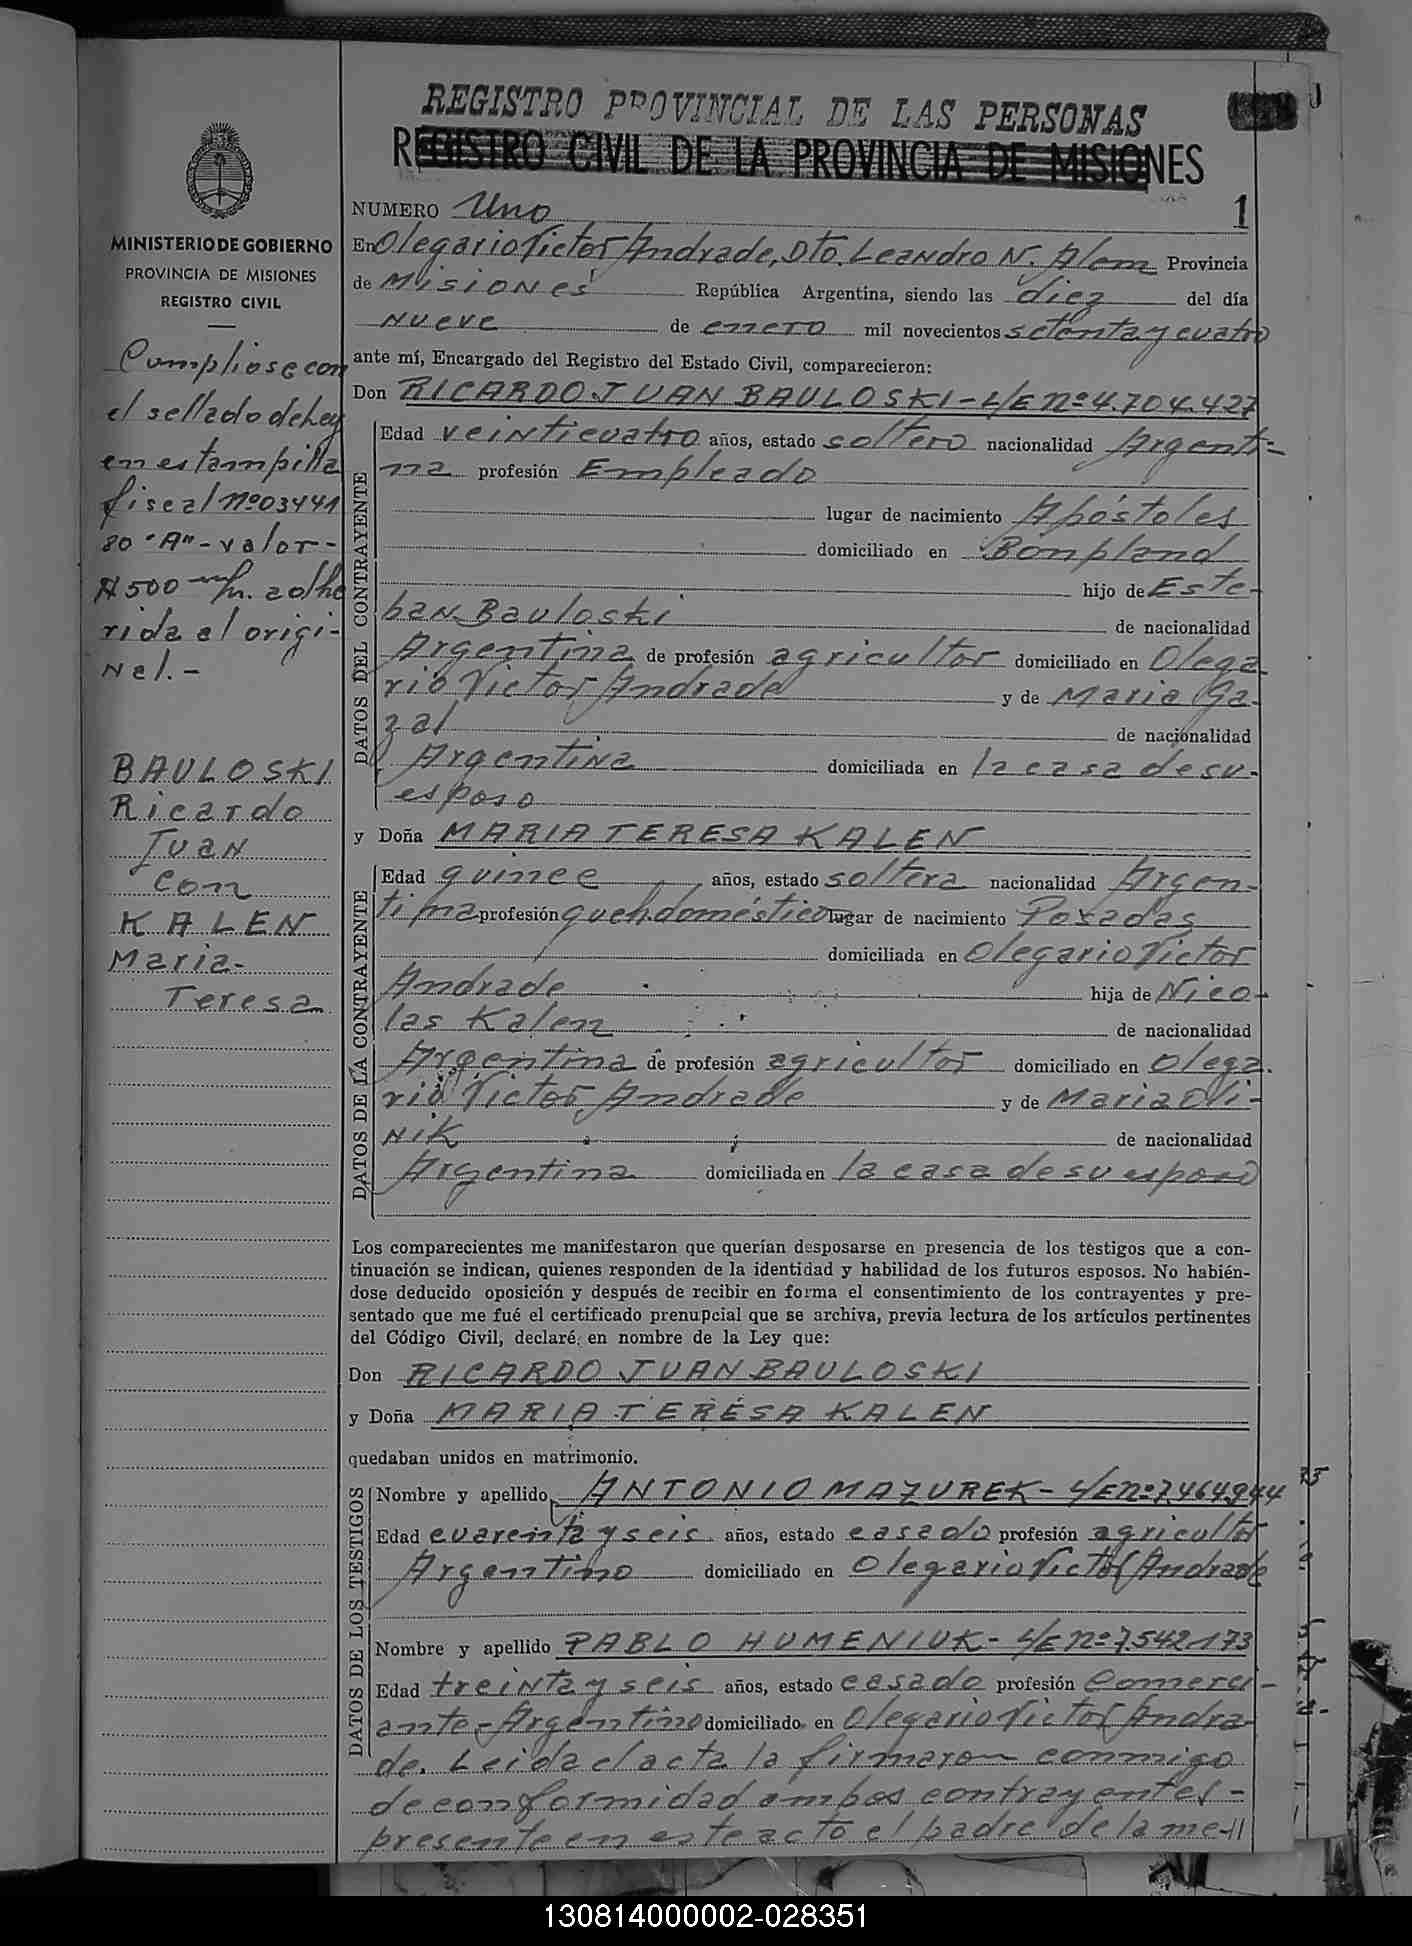 REGISTRO PROVINCIAL DE LAS PERSONAS
REGISTRO CIVIL DE LA PROVINCIA DE MISIONES
MINISTERIO DE GOBIERNO
PROVINCIA DE MISIONES
REGISTRO CIVIL
Cumpliose con
el sellado de Ley
en estampilla
fiscal Nº 03441
80 "A" - valor -
$ 500 m/n. adhe
rida al origi-
nal.-
BAULOSKI
Ricardo
Juan
con
KALEN
Maria-
Teresa
NUMERO Uno 1
En Olegario Victor Andrade, Dto. Leandro N. Alem Provincia
de Misiones República Argentina, siendo las diez del día
nueve de enero mil novecientos setenta y cuatro
ante mí, Encargado del Registro del Estado Civil, comparecieron:
Don RICARDO JUAN BAULOSKI - L/E Nº 4.704.427
DATOS DEL CONTRAYENTE
Edad veinticuatro años, estado soltero nacionalidad Argenti-
na profesión Empleado
lugar de nacimiento Apóstoles
domiciliado en Bonpland
hijo de Este-
ban Bauloski de nacionalidad
Argentina de profesión agricultor domiciliado en Olega
rio Victor Andrade y de Maria Ga-
zal de nacionalidad
Argentina domiciliada en la casa de su-
esposo
y Doña MARIA TERESA KALEN
DATOS DE LA CONTRAYENTE
Edad quince años, estado soltera nacionalidad Argen-
tina profesión queh. doméstico lugar de nacimiento Posadas
domiciliada en Olegario Victor
Andrade hija de Nico-
las Kalen de nacionalidad
Argentina de profesión agricultor domiciliado en Olega.
rio Victor Andrade y de Maria Oli-
nik de nacionalidad
Argentina domiciliada en la casa de su esposo
Los comparecientes me manifestaron que querían desposarse en presencia de los testigos que a con-
tinuación se indican, quienes responden de la identidad y habilidad de los futuros esposos. No habién-
dose deducido oposición y después de recibir en forma el consentimiento de los contrayentes y pre-
sentado que me fué el certificado prenupcial que se archiva, previa lectura de los artículos pertinentes
del Código Civil, declaré, en nombre de la Ley que:
Don RICARDO JUAN BAULOSKI
y Doña MARIA TERESA KALEN
quedaban unidos en matrimonio.
DATOS DE LOS TESTIGOS
Nombre y apellido ANTONIO MAZUREK - L/E Nº 7.464.944
Edad cuarenta y seis años, estado casado profesión agricultor
Argentino domiciliado en Olegario Victor Andrade
Nombre y apellido PABLO HUMENIUK - L/E Nº 7.542173
Edad treinta y seis años, estado casado profesión Comerci-
ante - Argentino domiciliado en Olegario Victor Andra-
de. Leida el acta la firmaron conmigo
de conformidad ambos contrayentes -
presente en este acto el padre de la me-//
130814000002-028351